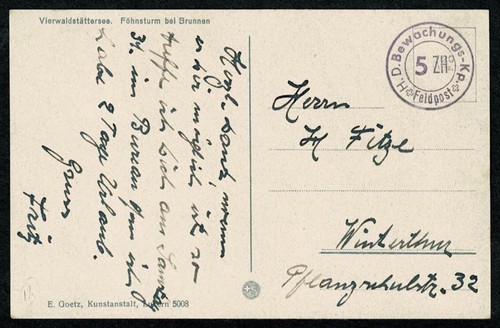 Vierwaldstättersee. Föhnsturm bei Brunnen
Herzl. Dank, wenn
es dir möglich ist so
treffe ich dich am Samstag
34 im Bureau
habe 2 Tage Urlaub.
Gruss
Fritz
H.D. Bewachungs-Kp.
5 ZH
Feldpost
Herrn
H Fitze
Winterthur
Pflanzschulstr. 32
E. Goetz, Kunstanstalt, Luzern 5008